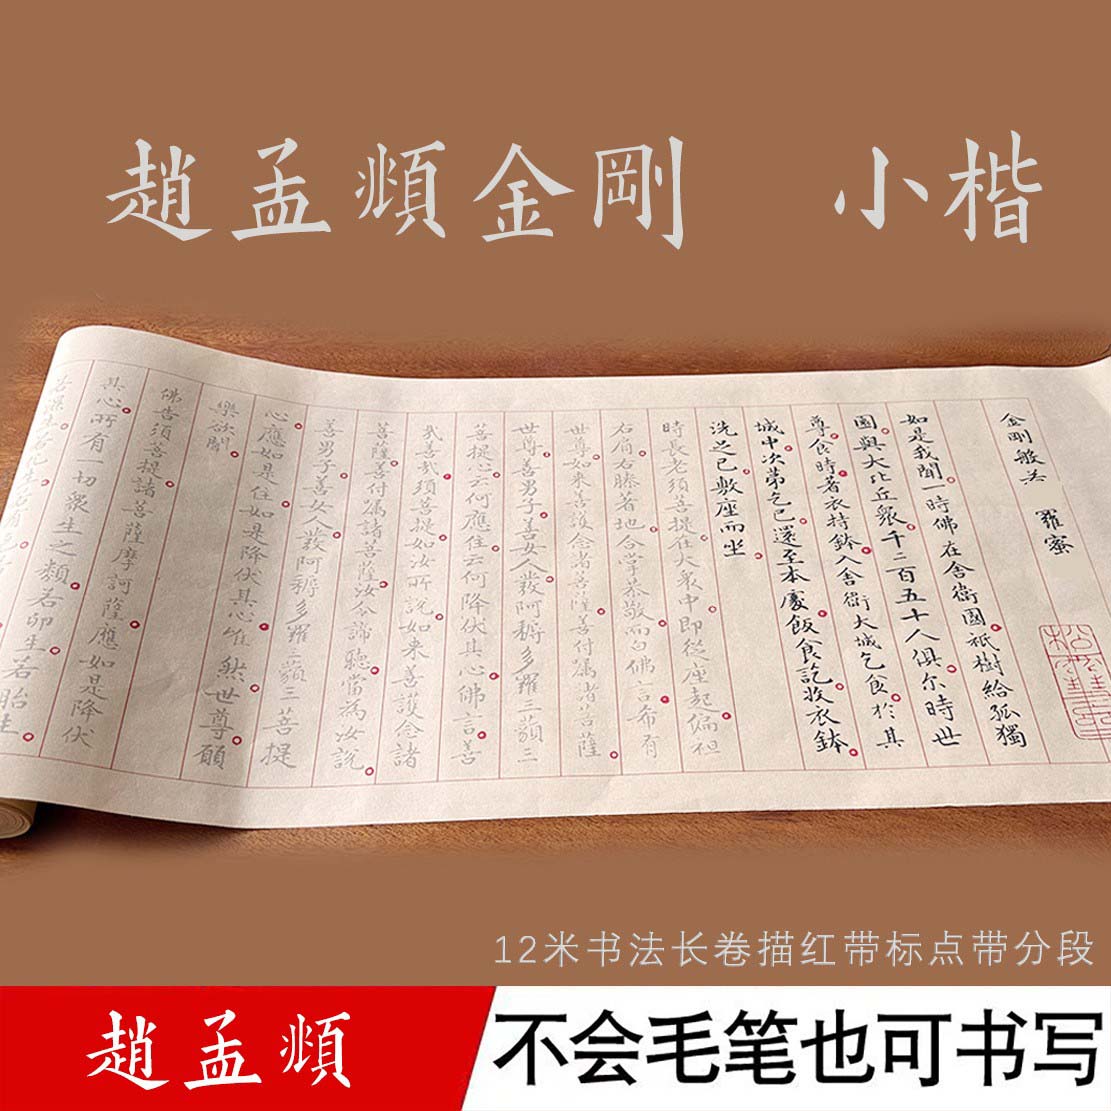 趙孟頫金剛 小楷
金剛般若 羅蜜
如是我聞一時佛在舍衛國祇樹給孤獨
園與大比丘衆千二百五十人俱尔時世
尊食時著衣持鉢入舍衛大城乞食於其
城中次第乞已還至本處飯食訖收衣鉢
洗足已敷座而坐
時長老須菩提在大衆中即從座起偏袒
右肩右膝著地合掌恭敬而白佛言希有
世尊如来善護念諸菩薩善付屬諸菩薩
世尊善男子善女人發阿耨多羅三藐三
菩提心云何應住云何降伏其心佛言善
哉善哉須菩提如汝所說如来善護念諸
菩薩善付屬諸菩薩汝今諦聽當為汝說
善男子善女人發阿耨多羅三藐三菩提
心應如是住如是降伏其心唯然世尊願
樂欲聞
佛告須菩提諸菩薩摩訶薩應如是降伏
其心所有一切衆生之類若卵生若胎生
12米书法长卷描红带标点带分段
趙孟頫
不会毛笔也可书写